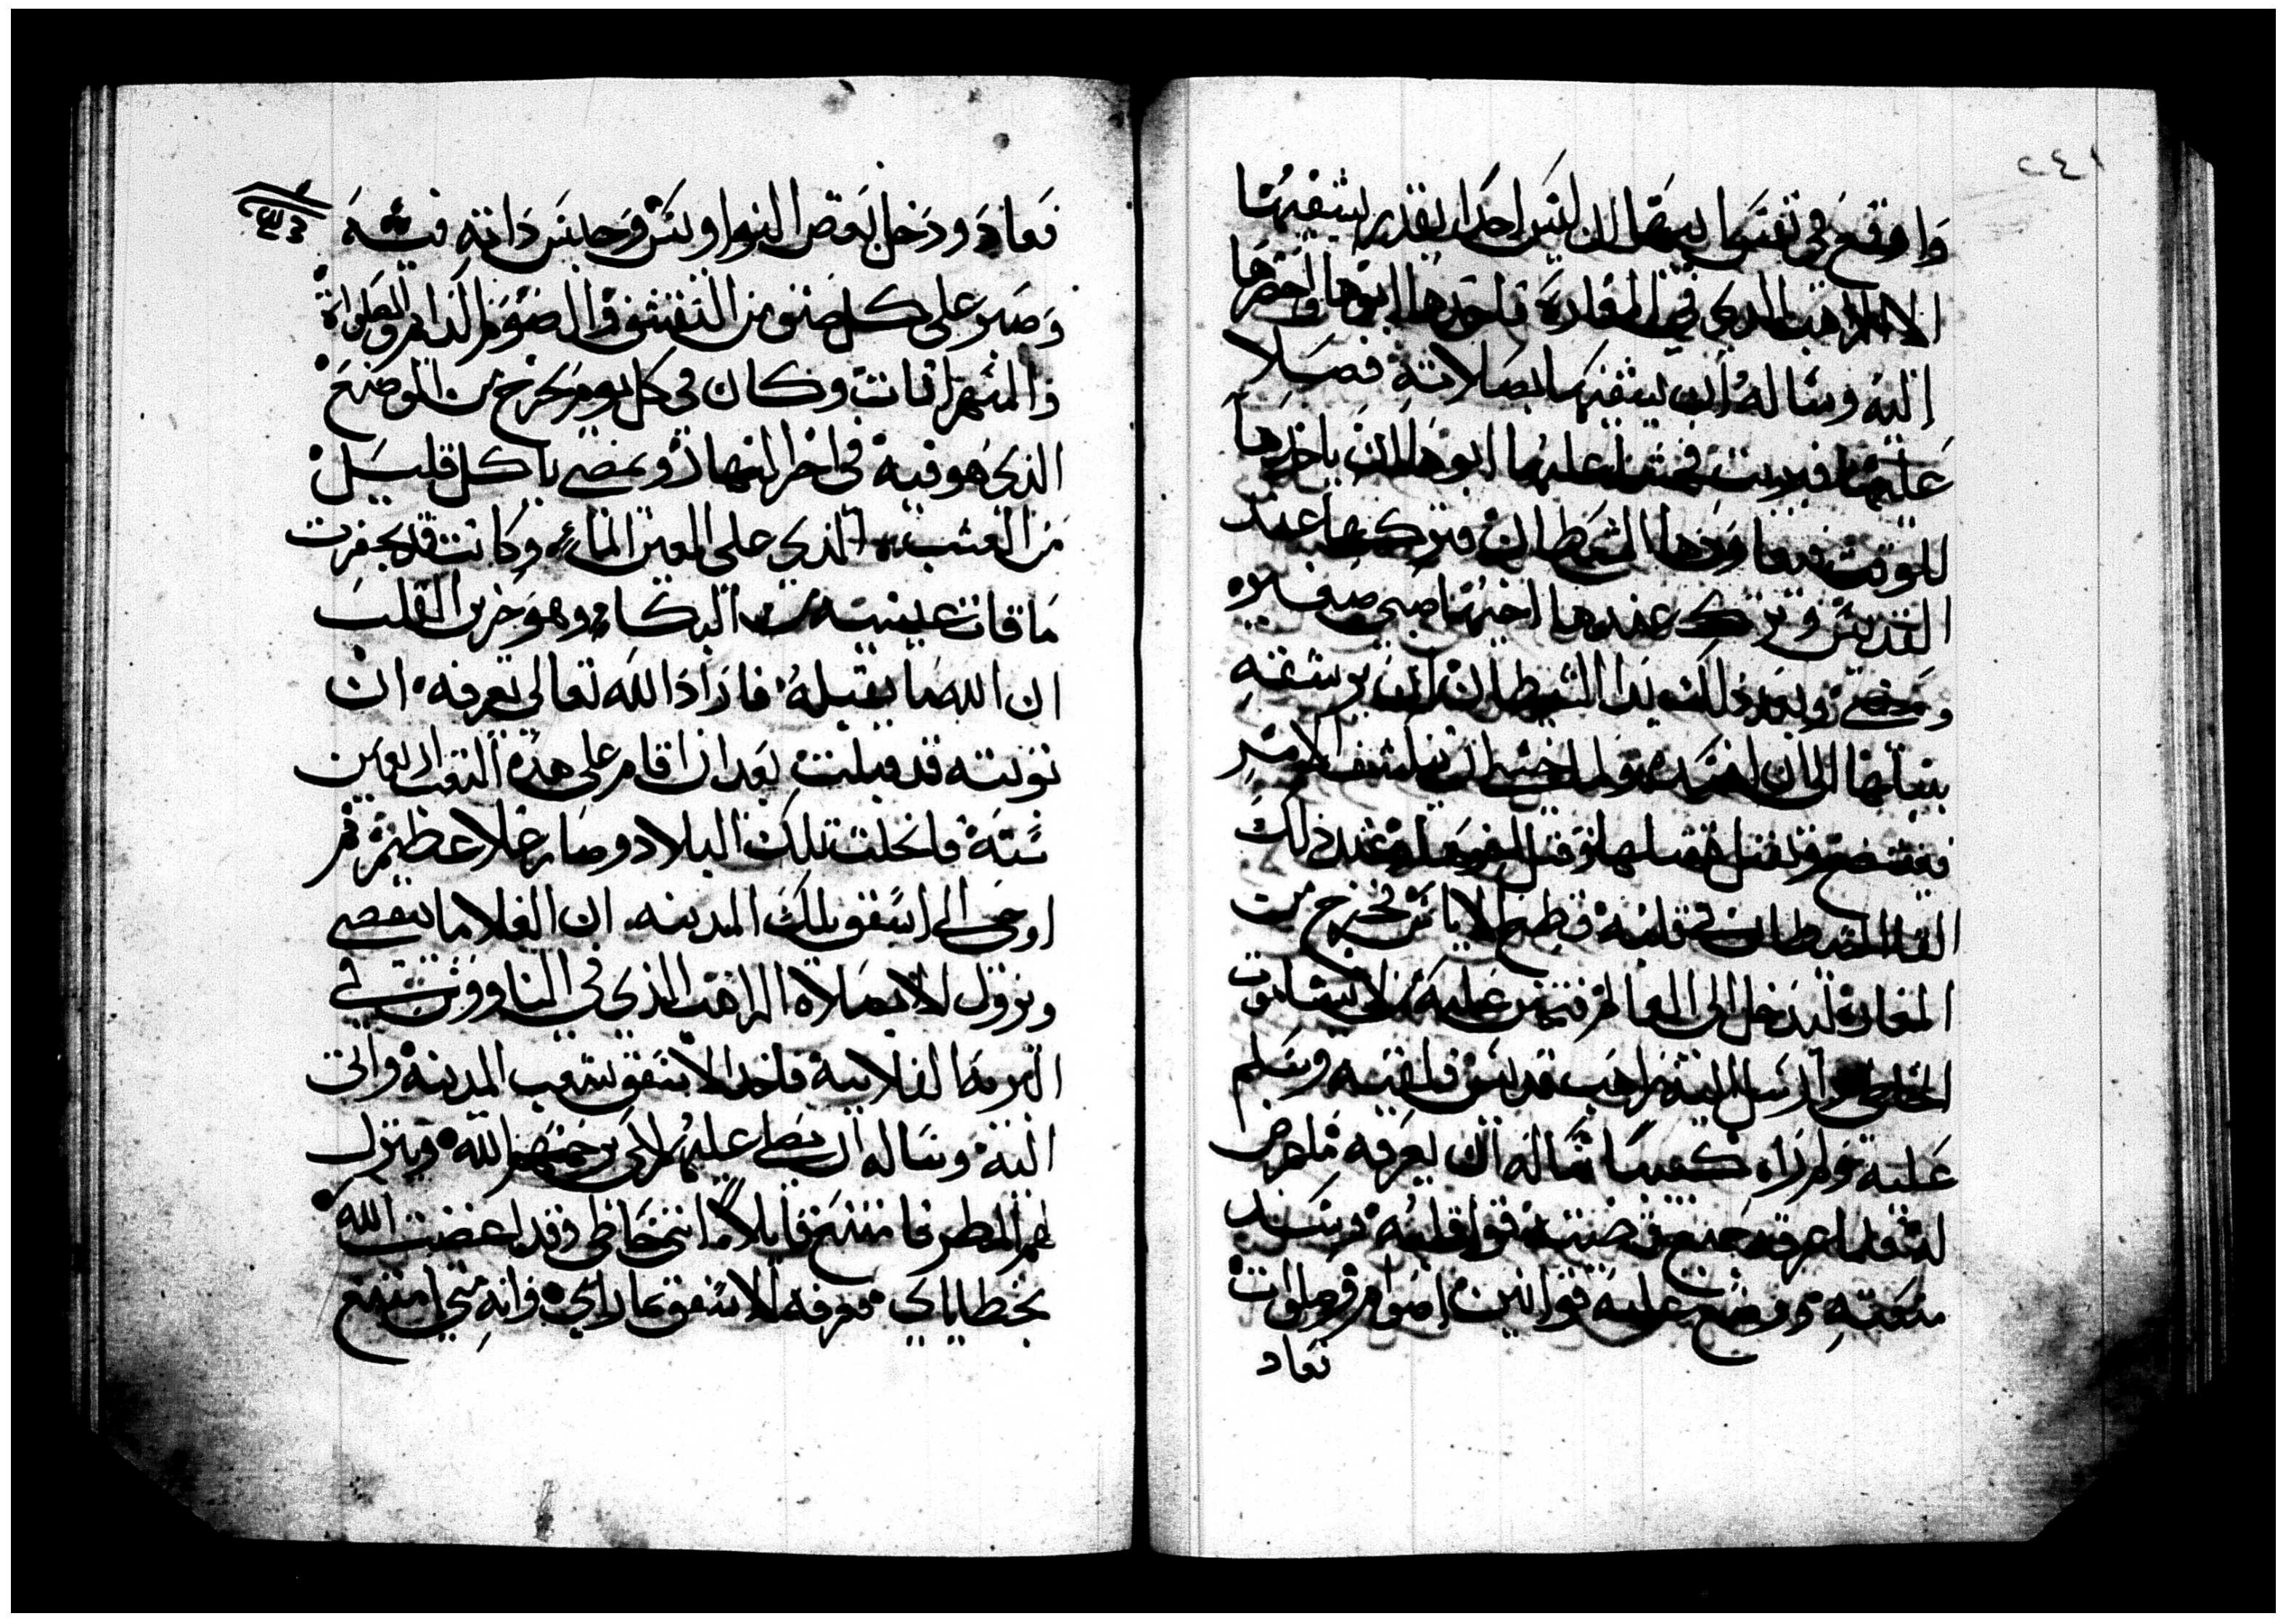 ٢٤١
واوقع في نفسها بينها ان ليس احدا يقدر يشفيها
الا الراهب الذي في المغارة فاخدها ابوها واحضرها
اليه وساله ان يشفيها بصلاته فصلا
عليها فبريت فخشي عليها ابوها ان ياخدها
للوقت فيعاودها الشيطان فتركها عند
القديس وترك عندها اخيها صبي صغير
ومضي وبعد ذلك بدا الشيطان ان يوسقه
بقتلها الي ان ولما خشي ان
فيفتضح قتلها وقتل الصبي وعند ذلك
القا الشيطان في قلبه قطع الاياس فخرج من
المغاره ليدخل الي العالم فتحنن عليه الذي لا يشا موت
الخاطي وارسل اليه راهب قديس فلقيه وسلم
عليه ولم راه كعيبا ساله ان يعرفه ما عرض
له فلما عرفه جميع قضيته قوا قلبه وسند
ضعفه ووضع عليه قوانين اصوام وصلوات
فعاد
فعاد ودخل بعض النواويس وحابس داته فيه
وصبر علي كل صنف من التقشف والصوم الدايم والصلواة
والسهرانات وكان في كل يوم يخرج من الموضع
الذي هو فيه في اخر النهار ويمضي ياكل قليل
من العشب الذي علي العين الماء وكانت قد بحفرت
ماقات عينيه من البكاء وهو حزين القلب
ان الله ما يقبله فاراد الله تعالى يعرفه ان
توبته قد قبلت بعد ان اقام علي هذه التعب اربعين
سنة فانحلت تلك البلاد وصار غلا عظيم ثم
اوحي الي اسقف تلك المدينه ان الغلا ما ينقضي
ويزول الا بصلاة الراهب الذي في الناووس في
البرية الفلانية فاخد الاسقف شعب المدينة واتي
اليه وساله ان يصلي عليهم لكي يرحمهم الله وينزل
لهم المطر فامتنع قايلا انني خاطي وقد اغضبت الله
بخطاياي فعرفه الاسقف بما راي وانه متي امتنع